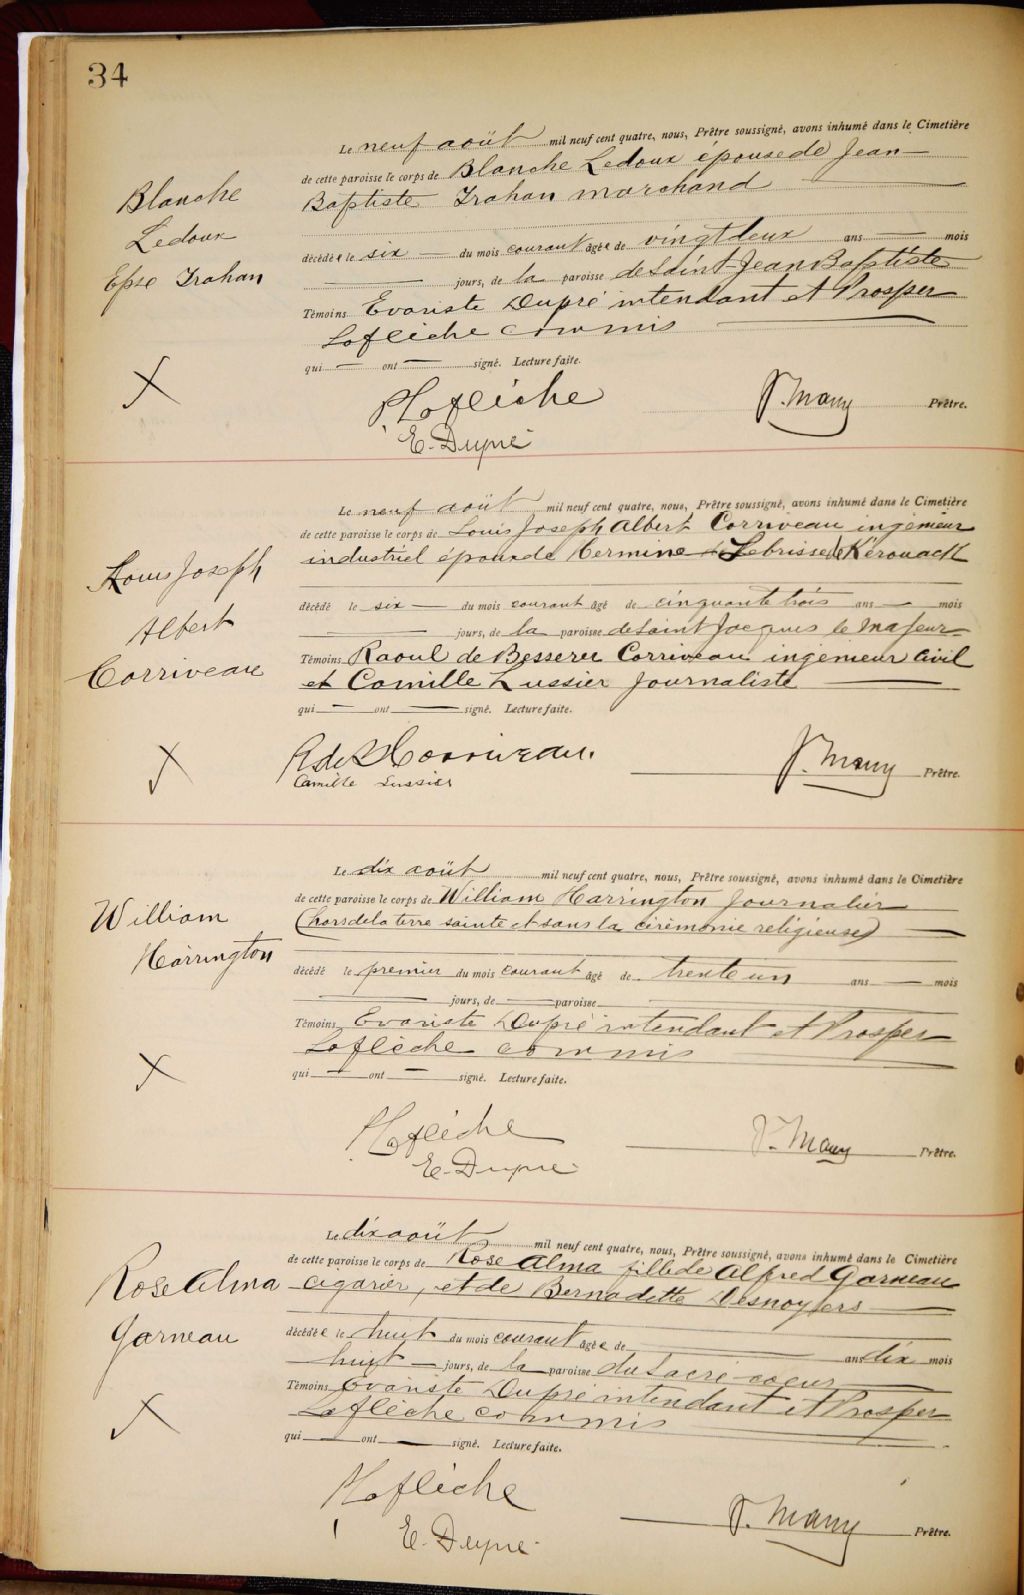 34
Le neuf août mil neuf cent quatre, nous, Prêtre soussigné, avons inhumé dans le Cimetière
de cette paroisse le corps de Blanche Ledoux épouse de Jean
Baptiste Trahan marchand
Blanche
Ledoux
Epse Trahan
décédée le six du mois courant âgée de vingt deux ans mois
jours, de la paroisse de Saint Jean Baptiste
Témoins Evariste Dupré intendant et Prosper
Laflèche commis
qui ont signé. Lecture faite.
X
P Laflèche
P. Mauy Prêtre.
E. Dupré
Le neuf août mil neuf cent quatre, nous, Prêtre soussigné, avons inhumé dans le Cimetière
de cette paroisse le corps de Louis Joseph Albert Corriveau ingénieur
industriel époux de Hermine Lebrisse de Kérouack
Louis Joseph
Albert
Corriveau
décédé le six du mois courant âgé de cinquante trois ans mois
jours, de la paroisse de Saint Jacques le Majeur
Témoins Raoul de Besserer Corriveau ingénieur civil
et Camille Lussier journaliste
qui ont signé. Lecture faite.
X
R de B Corriveau.
Camille Lussier
P. Mauy Prêtre.
Le dix août mil neuf cent quatre, nous, Prêtre soussigné, avons inhumé dans le Cimetière
de cette paroisse le corps de William Harrington journalier
(hors de la terre sainte et sans la cérémonie religieuse)
William
Harrington
décédé le premier du mois courant âgé de trente un ans mois
jours, de paroisse
Témoins Evariste Dupré intendant et Prosper
Laflèche commis
qui ont signé. Lecture faite.
X
P Laflèche
P. Mauy Prêtre.
E. Dupré
Le dix août mil neuf cent quatre, nous, Prêtre soussigné, avons inhumé dans le Cimetière
de cette paroisse le corps de Rose Alma fille de Alfred Garneau
cigarier, et de Bernadette Desnoyers
Rose Alma
Garneau
décédée le huit du mois courant âgée de ans dix mois
huit jours, de la paroisse du Sacré-coeur
Témoins Evariste Dupré intendant et Prosper
Laflèche commis
qui ont signé. Lecture faite.
X
P Laflèche
P. Mauy Prêtre.
E. Dupré